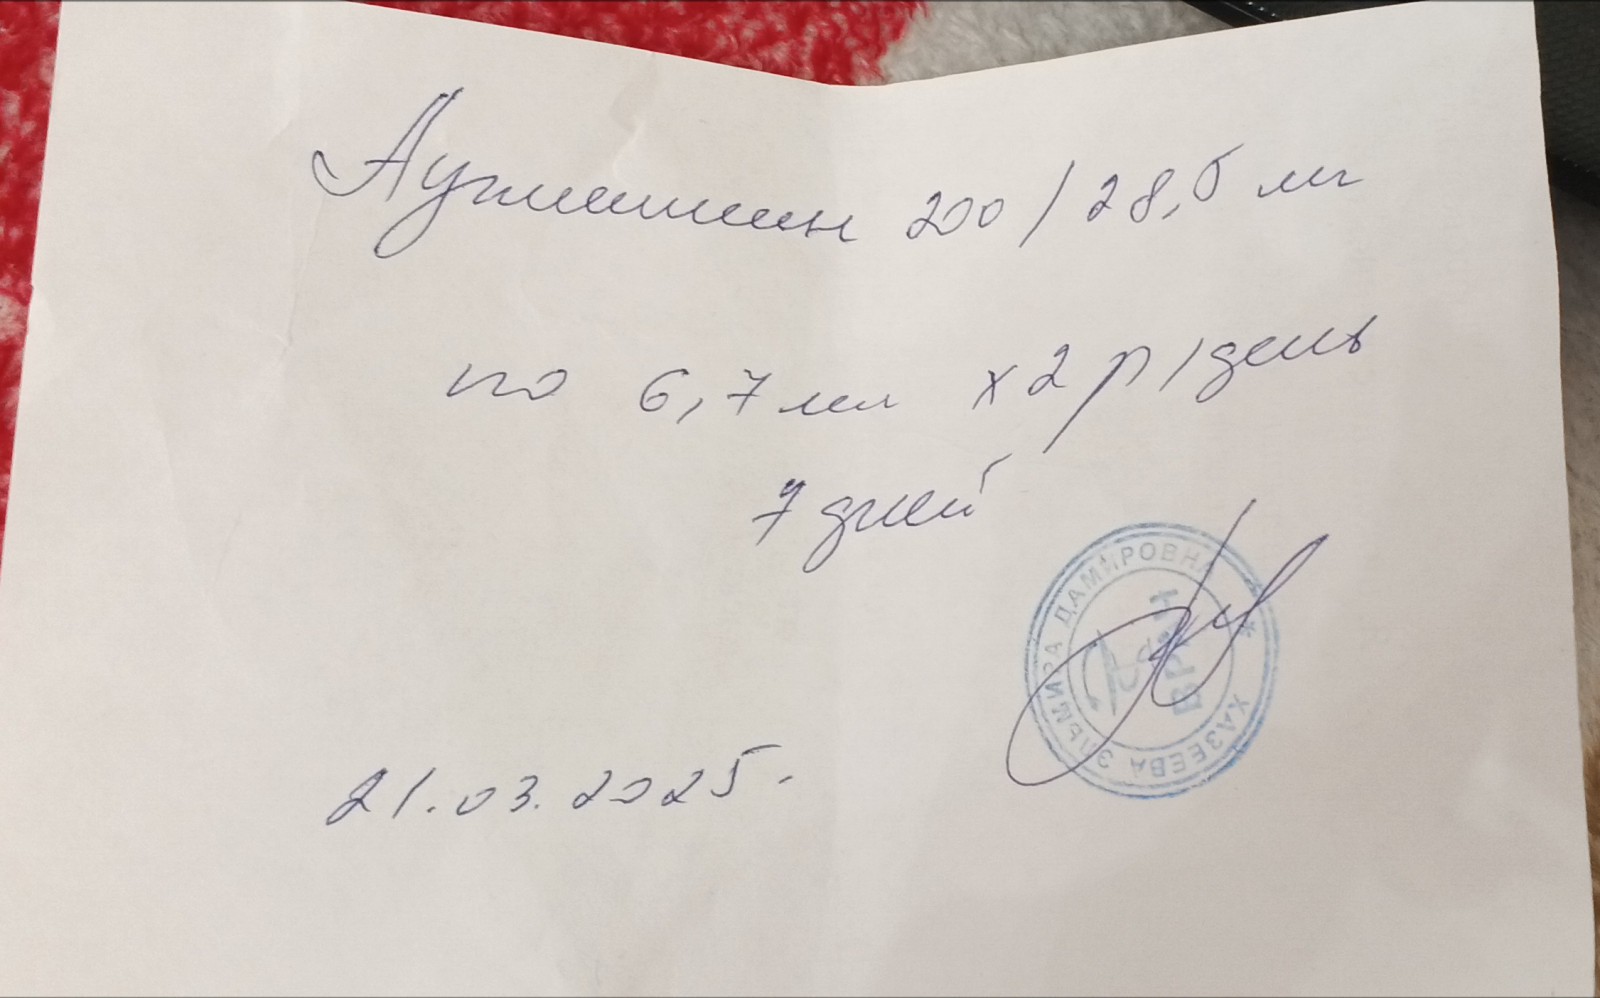 Аугментин 200/28,5 мг
по 6,7 мл х 2 р/день
7 дней
ХАЗЕЕВА ЭЛЬМИРА ДАМИРОВНА *
ВРАЧ
21.03.2025.